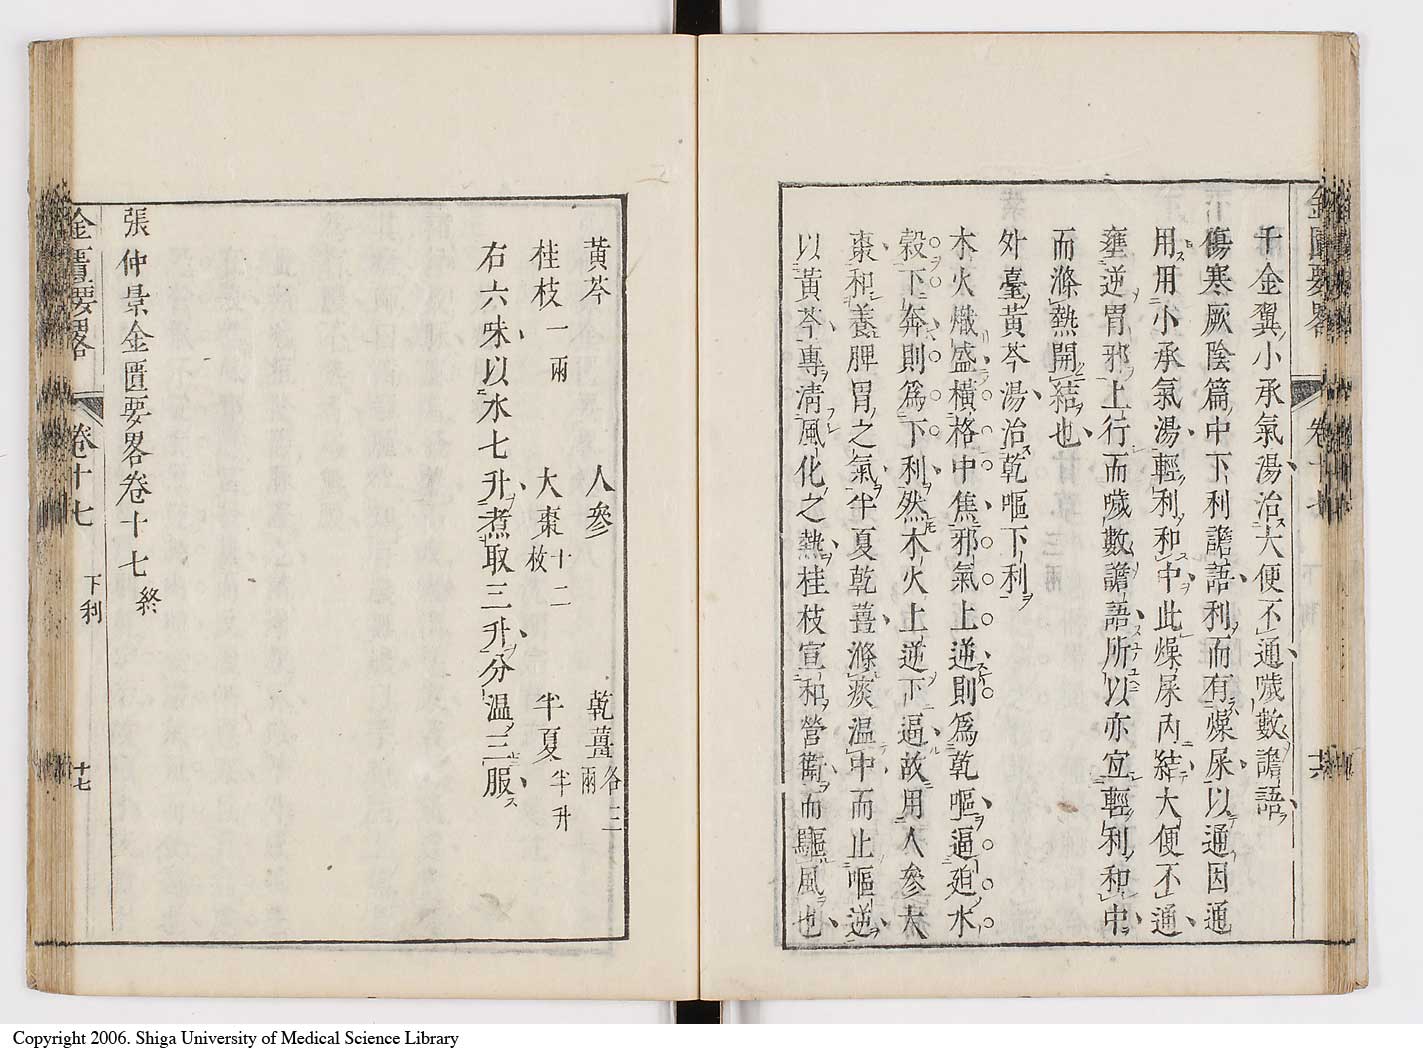 千金翼小承氣湯治大便不通噦數譫語
傷寒厥陰篇中下利譫語利而有燥屎以通因通
用用小承氣湯輕利和中此燥屎內結大便不通
壅逆胃邪上行而噦數譫語所以亦宜輕利和中
而滌熱開結也
外臺黃芩湯治乾嘔下利
木火熾盛橫格中焦邪氣上逆則為乾嘔逼廹水
穀下奔則為下利然木火上逆下逼故用人參大
棗和養脾胃之氣半夏乾薑滌痰温中而止嘔逆
以黃芩專清風化之熱桂枝宣和營衛而驅風也
黃芩 人參 乾薑各三兩
桂枝一兩 大棗十二枚 半夏半升
右六味以水七升煮取三升分温三服
張仲景金匱要畧卷十七終
金匱要畧 卷十七 下利 十七
Copyright 2006. Shiga University of Medical Science Library